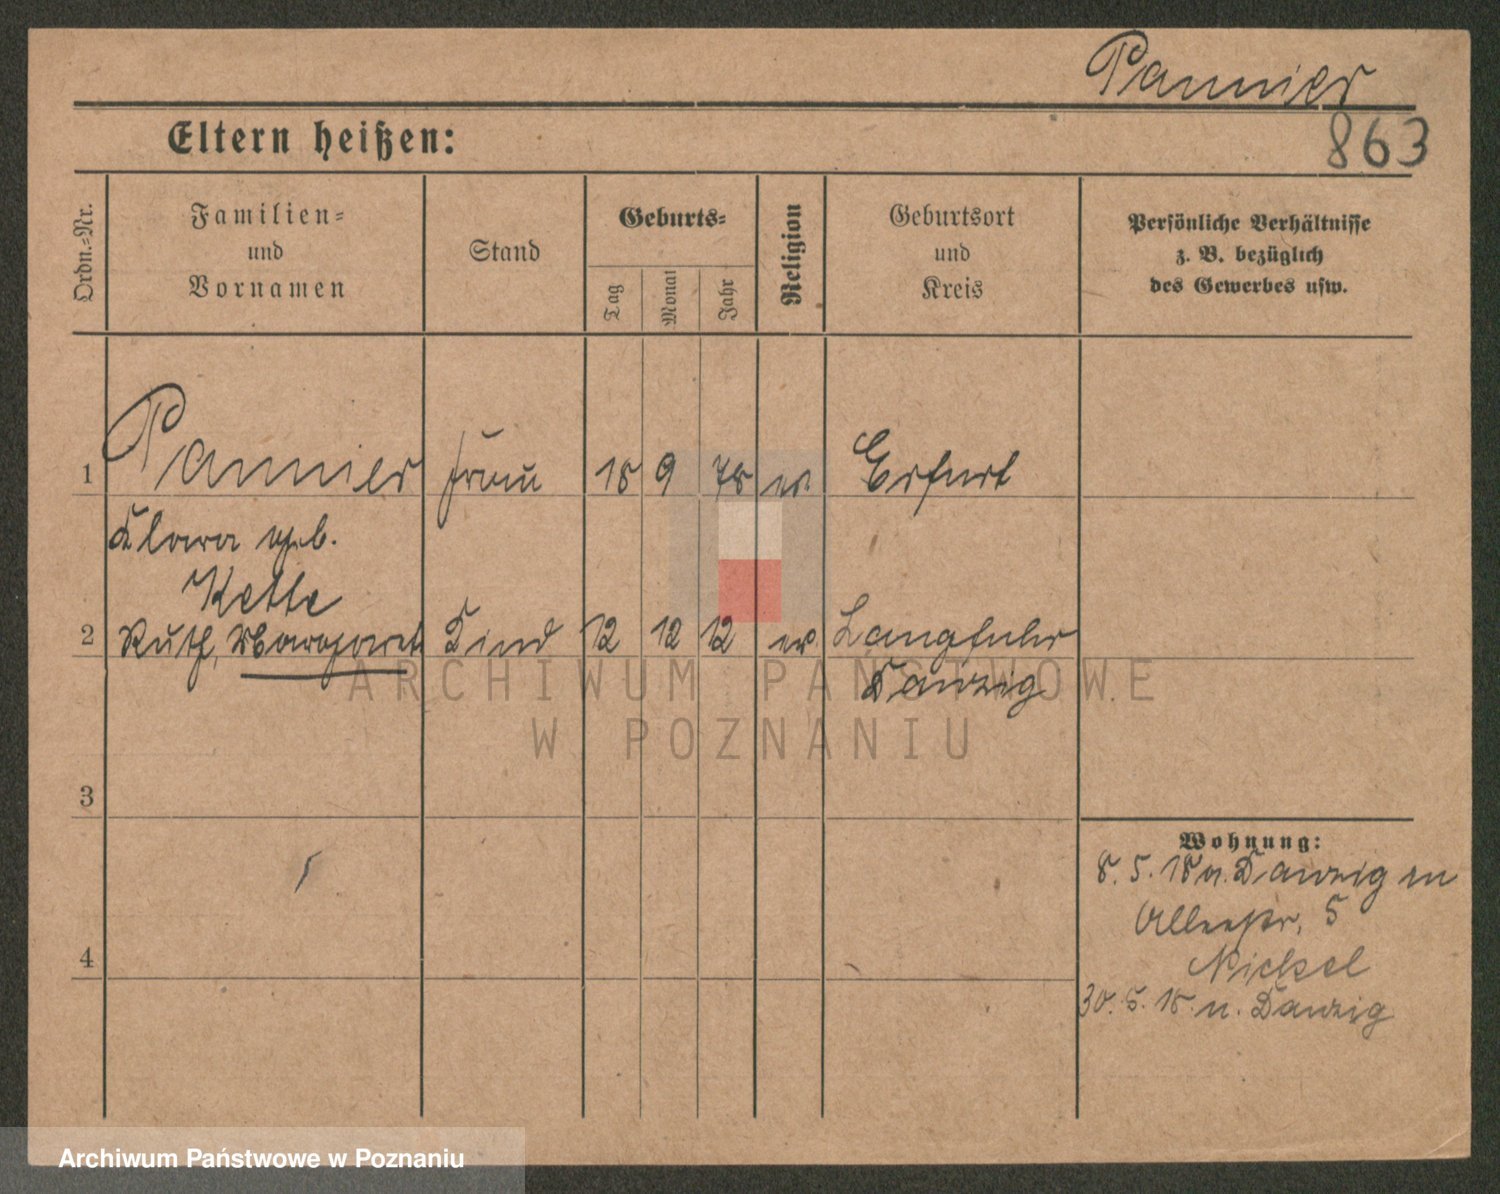 Pannier
863
Eltern heißen:
Ordn.-Nr.
Familien-
und
Vornamen
Stand
Geburts-
Tag
Monat
Jahr
Religion
Geburtsort
und
Kreis
Persönliche Verhältnisse
z. B. bezüglich
des Gewerbes usw.
1 Pannier Frau 18 9 78 ev. Erfurt
Klara geb.
Kette
2 Ruth, Margaret Kind 12 12 12 ev. Langfuhr
Danzig
3
4
Wohnung:
8. 5. 18 v. Danzig in
Alleestr. 5
Nickel
30. 5. 18. n. Danzig
ARCHIWUM PAŃSTWOWE
W POZNANIU
Archiwum Państwowe w Poznaniu